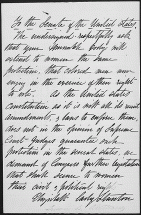 To the Senate of the United States,
The undersigned respectfully ask
that your honorable body will
extend to women the same
protection, that colored men now
in the exercise of their right
to vote. As the United States
constitution as it is with all its
amendments, & laws to enforce them,
are not in the opinion of Supreme
Court Judges guarantee such
protection in the several states, we
demand of Congress further legislation
that shall secure to women
their civil & political rights
Elizabeth Cady Stanton